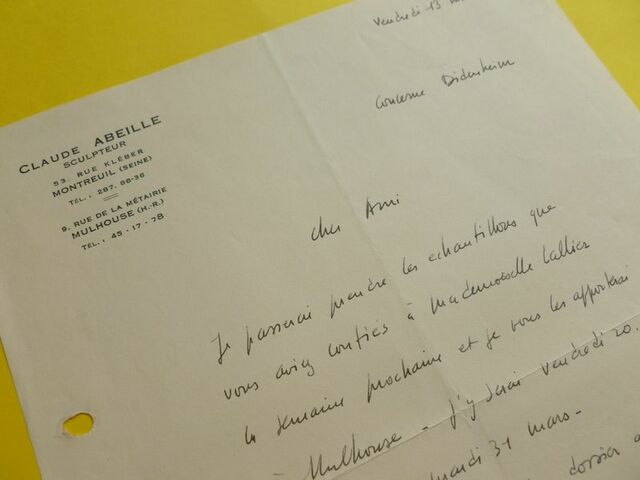 Vendredi 13
Concerne Didenheim
CLAUDE ABEILLE
SCULPTEUR
53, RUE KLÉBER
MONTREUIL (SEINE)
TÉL. : 287. 88-36
9, RUE DE LA MÉTAIRIE
MULHOUSE (H.-R.)
TÉL. : 45 - 17 - 78
Cher Ami
Je passerai prendre les echantillons que
vous aviez confiés à mademoiselle Lallier
la semaine prochaine et je vous les apporterai
à Mulhouse - j'y serai Vendredi 20.
mardi 31 mars -
dossier